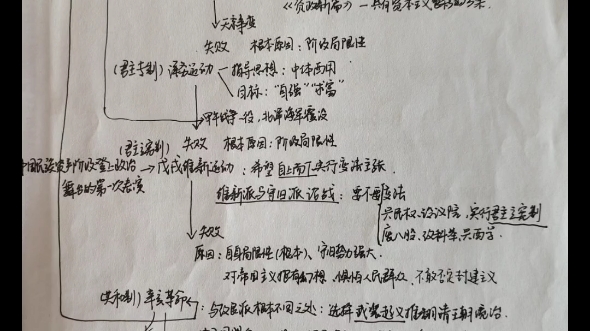 《资政新篇》—具有资本主义色彩的方案
天京事变
失败 根本原因：阶级局限性
(君主专制) 洋务运动 — 指导思想：中体西用
目标："自强""求富"
甲午战争一役，北洋海军覆没
(君主立宪制) 失败 根本原因：阶级局限性
中国民族资产阶级登上政治 → 戊戌维新运动：希望自上而下实行变法主张
舞台的第一次表演
维新派与守旧派论战：要不要变法
兴民权、设议院，实行君主立宪制
废八股、改科举、兴西学
失败
原因：自身局限性(根本)、守旧势力强大
对帝国主义抱有幻想、惧怕人民群众、不敢否定封建主义
(共和制) 辛亥革命
与改良派根本不同之处：选择武装起义推翻清王朝统治